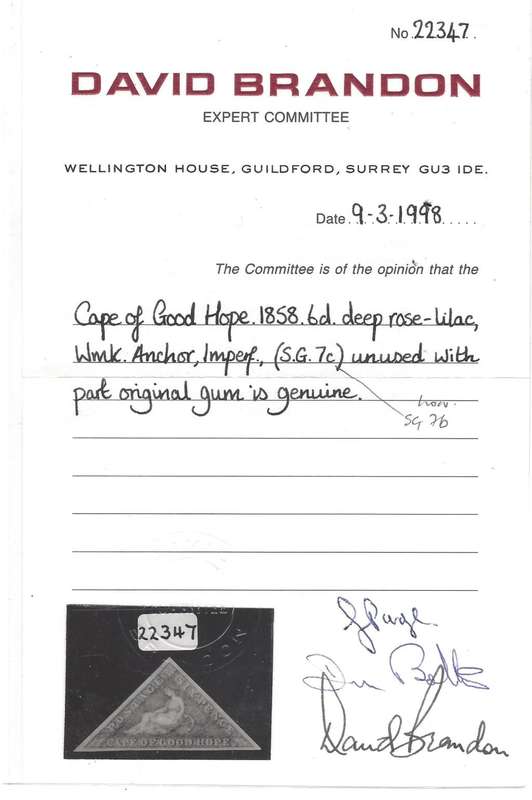 No. 22347.
DAVID BRANDON
EXPERT COMMITTEE
WELLINGTON HOUSE, GUILDFORD, SURREY GU3 IDE.
Date. 9-3-1998.....
The Committee is of the opinion that the
Cape of Good Hope. 1858. 6d. deep rose-lilac,
Wmk. Anchor, Imperf., (S.G. 7c) unused with
part original gum is genuine.
now.
SG 7b
22347
POSTAGE SIX PENCE
CAPE OF GOOD HOPE
David Brandon